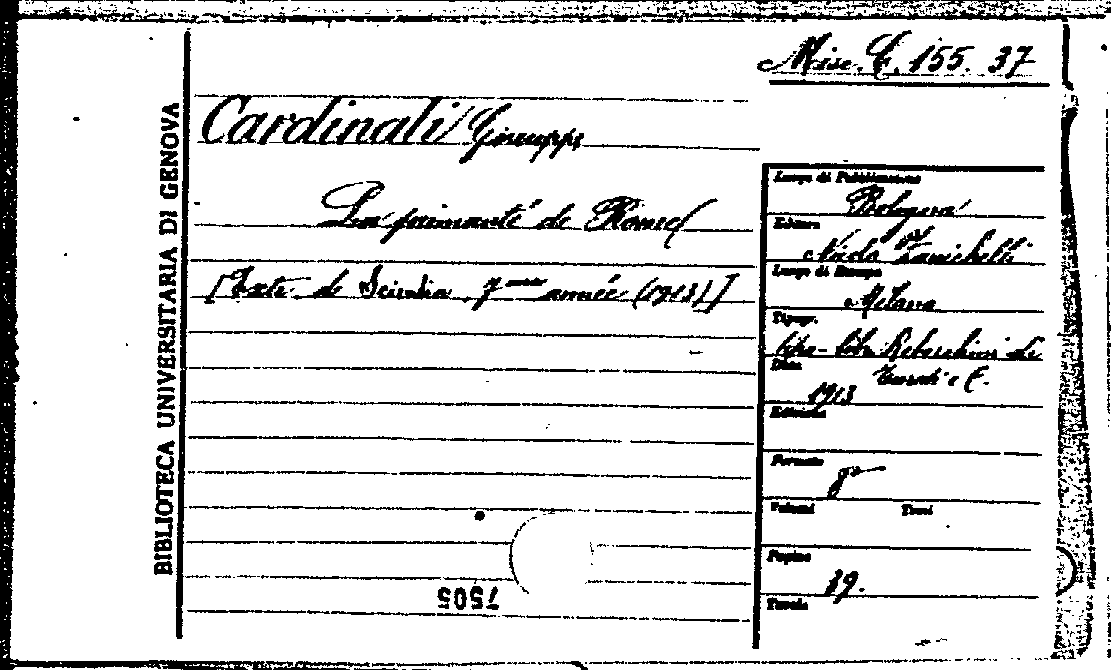 Misc. C. 155. 37
BIBLIOTECA UNIVERSITARIA DI GENOVA
Cardinali Giuseppe
La primauté de Rome
[Extr. de Scientia, 7ème année (1913)]
Luogo di Pubblicazione
Bologna
Editore
Nicola Zanichelli
Luogo di Stampa
Milano
Tipogr.
tipo-lit. Rebeschini di
Turati e C.
Data
1913
Edizione
Formato
8º
Volumi Tomi
Pagine
19.
Tavole
7505